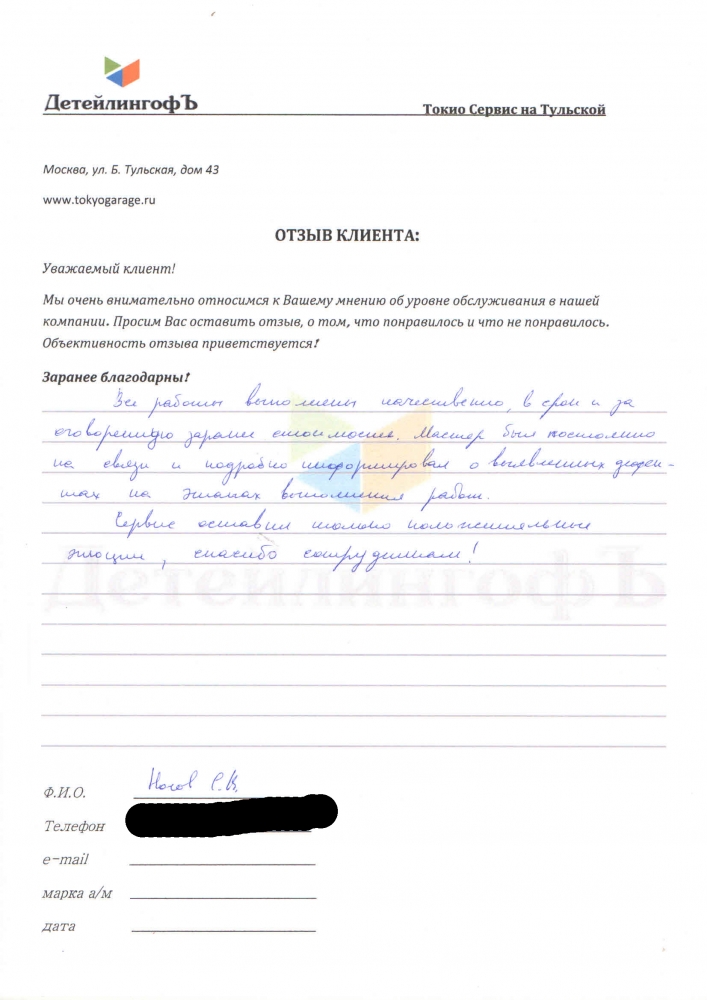 ДетейлингофЪ
Токио Сервис на Тульской
Москва, ул. Б. Тульская, дом 43
www.tokyogarage.ru
ОТЗЫВ КЛИЕНТА:
Уважаемый клиент!
Мы очень внимательно относимся к Вашему мнению об уровне обслуживания в нашей
компании. Просим Вас оставить отзыв, о том, что понравилось и что не понравилось.
Объективность отзыва приветствуется!
Заранее благодарны!
Все работы выполнены качественно, в срок и за
оговоренную заранее стоимость. Мастер был постоянно
на связи и подробно информировал о выявленных дефек-
тах на этапах выполнения работ.
Сервис оставил только положительные
эмоции, спасибо сотрудникам!
ДетейлингофЪ
Ф.И.О. С.В.
Телефон
e-mail
марка а/м
дата